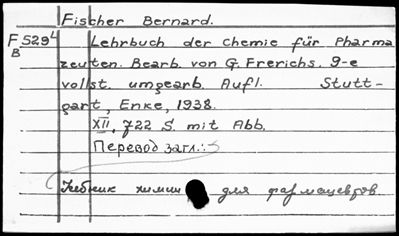 Fischer Bernard.
F 529 L Lehrbuch der Chemie für Pharma
B zeuten. Bearb. von G. Frerichs. 9-e
vollst. umgearb. Aufl. Stutt-
gart, Enke, 1938.
XII, 722 S. mit Abb.
Перевод загл.:
Учебник химии для фармацевтов